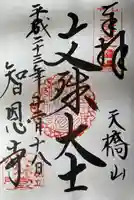 奉拝
天橋山
文殊大士
平成二十三年
十八日
智恩寺